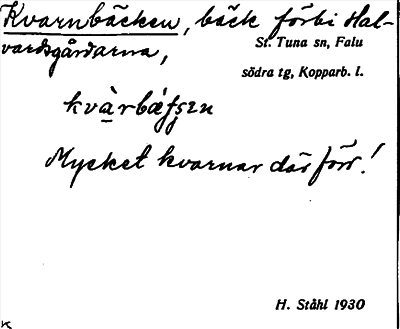 Kvarnbäcken, bäck förbi Hal-
vardsgårdarna,
St. Tuna sn, Falu
södra tg, Kopparb. l.
kvàrbǽʃʂɛn
Mycket kvarnar där förr!
H. Ståhl 1930
K